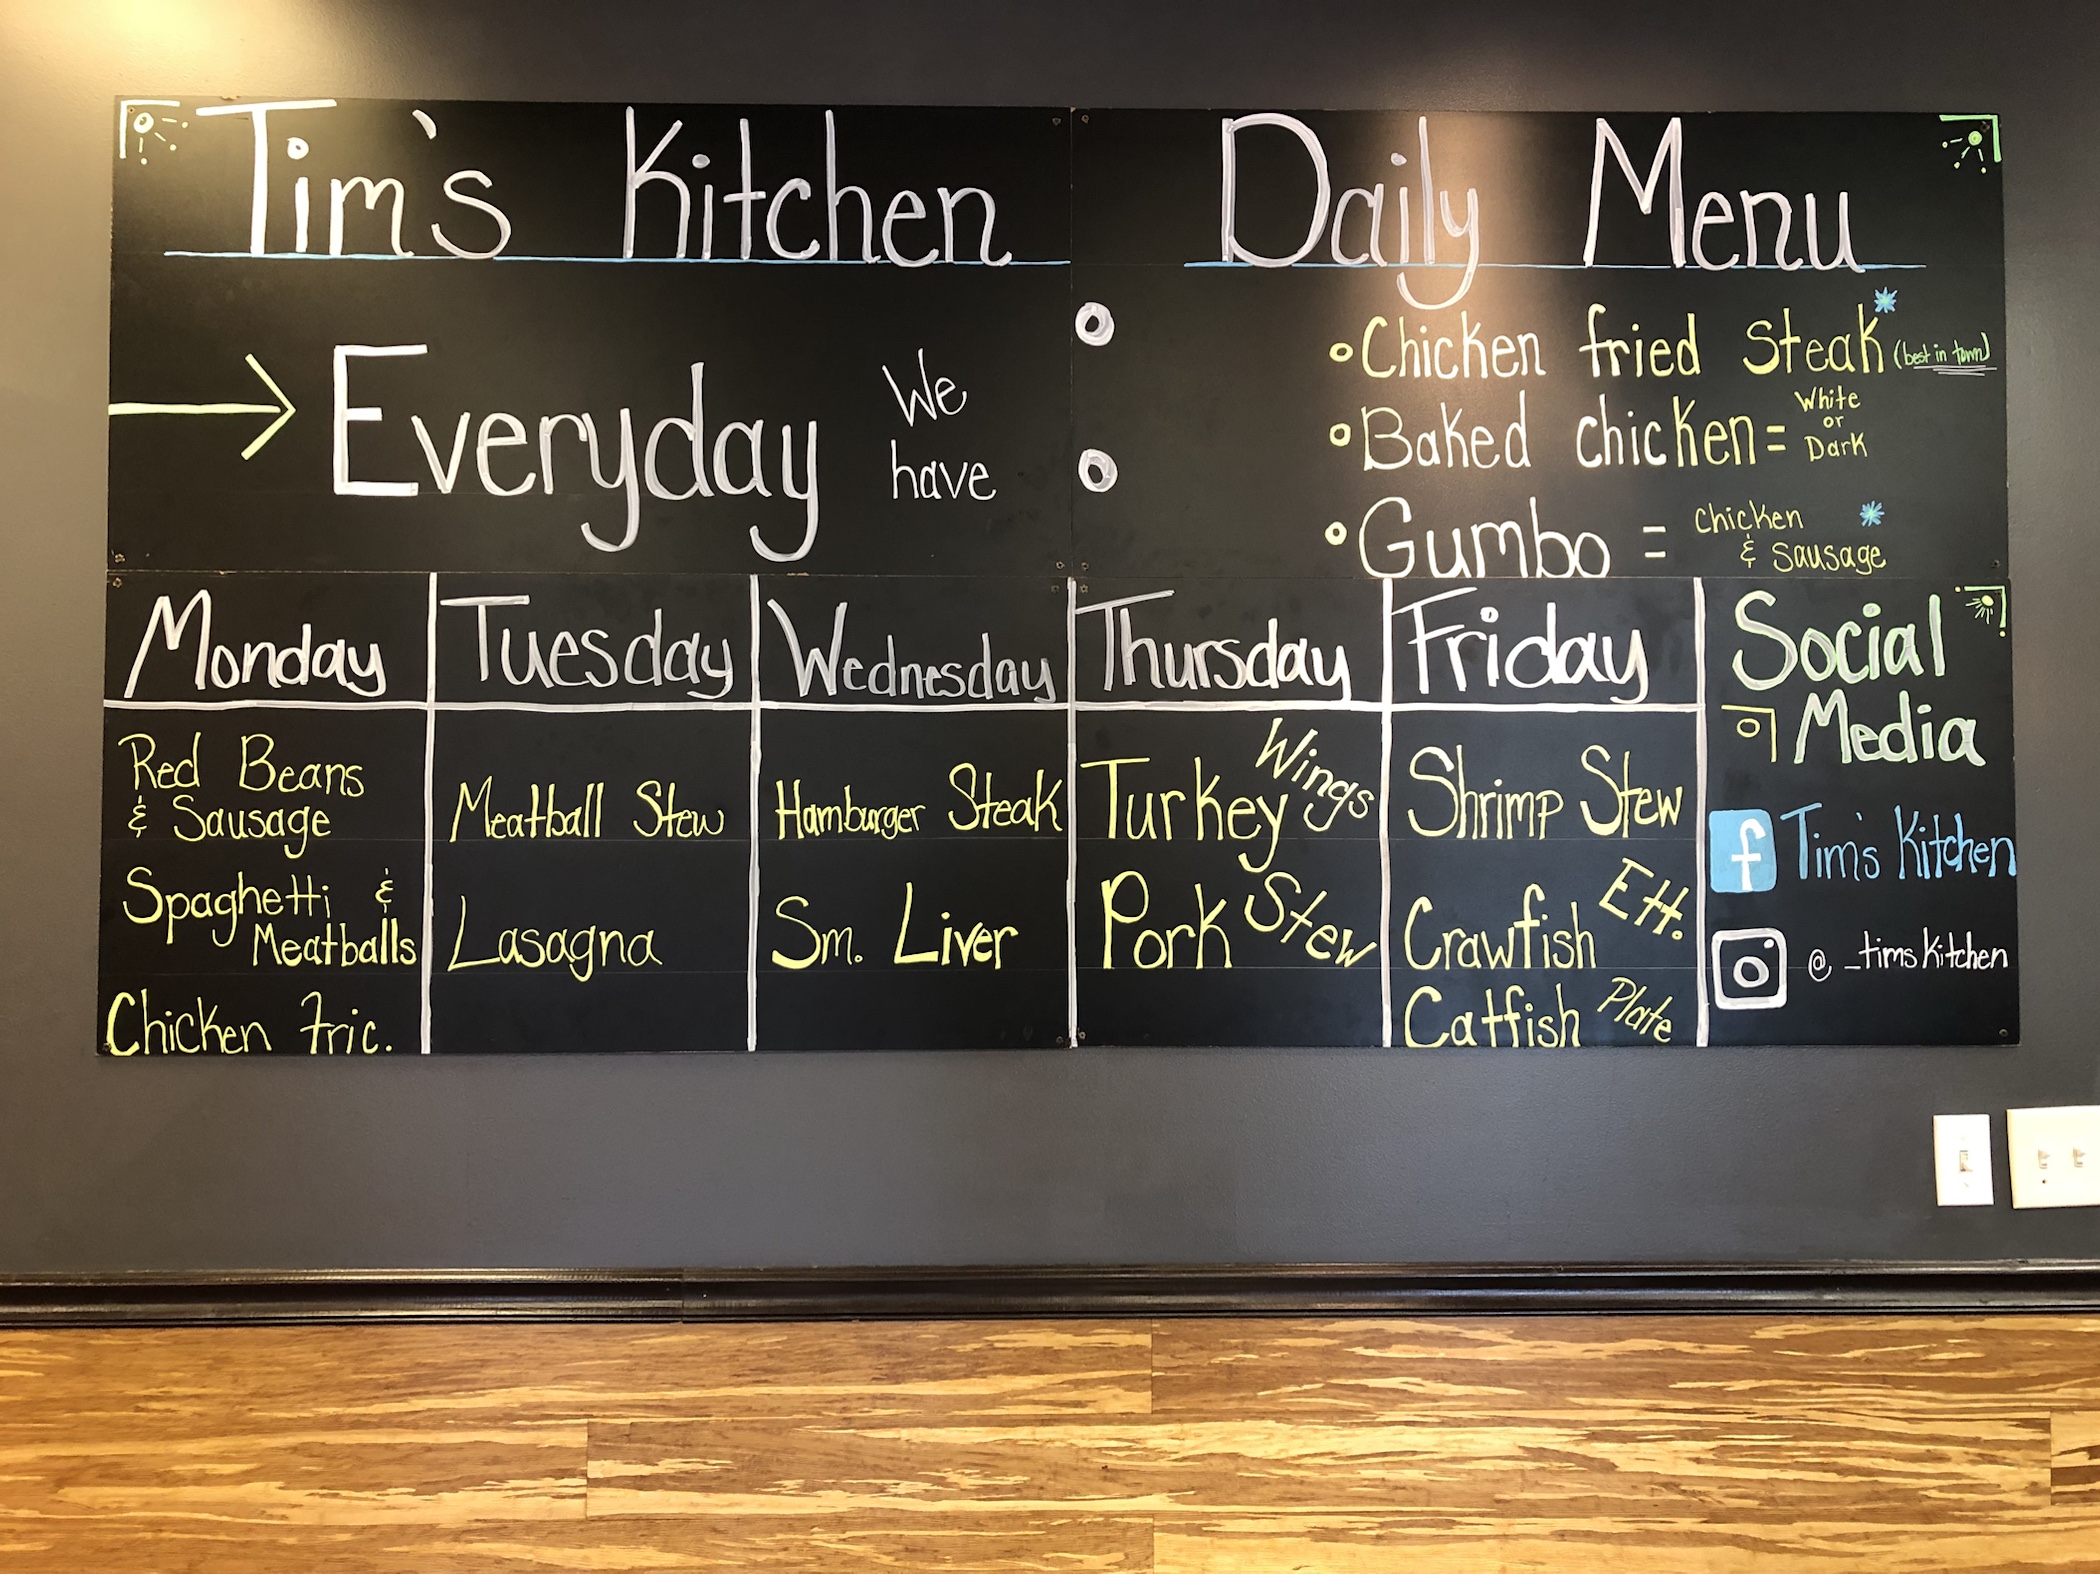 Tim's Kitchen
Daily Menu
Everyday
We
have
Chicken fried Steak (best in town)
Baked chicken = White
or
Dark
Gumbo = Chicken
& Sausage
Monday
Red Beans
& Sausage
Spaghetti &
Meatballs
Chicken Fric.
Tuesday
Meatball Stew
Lasagna
Wednesday
Hamburger Steak
Sm. Liver
Thursday
Turkey Wings
Pork Stew
Friday
Shrimp Stew
Crawfish Ett.
Catfish Plate
Social
Media
f Tim's Kitchen
@_timskitchen